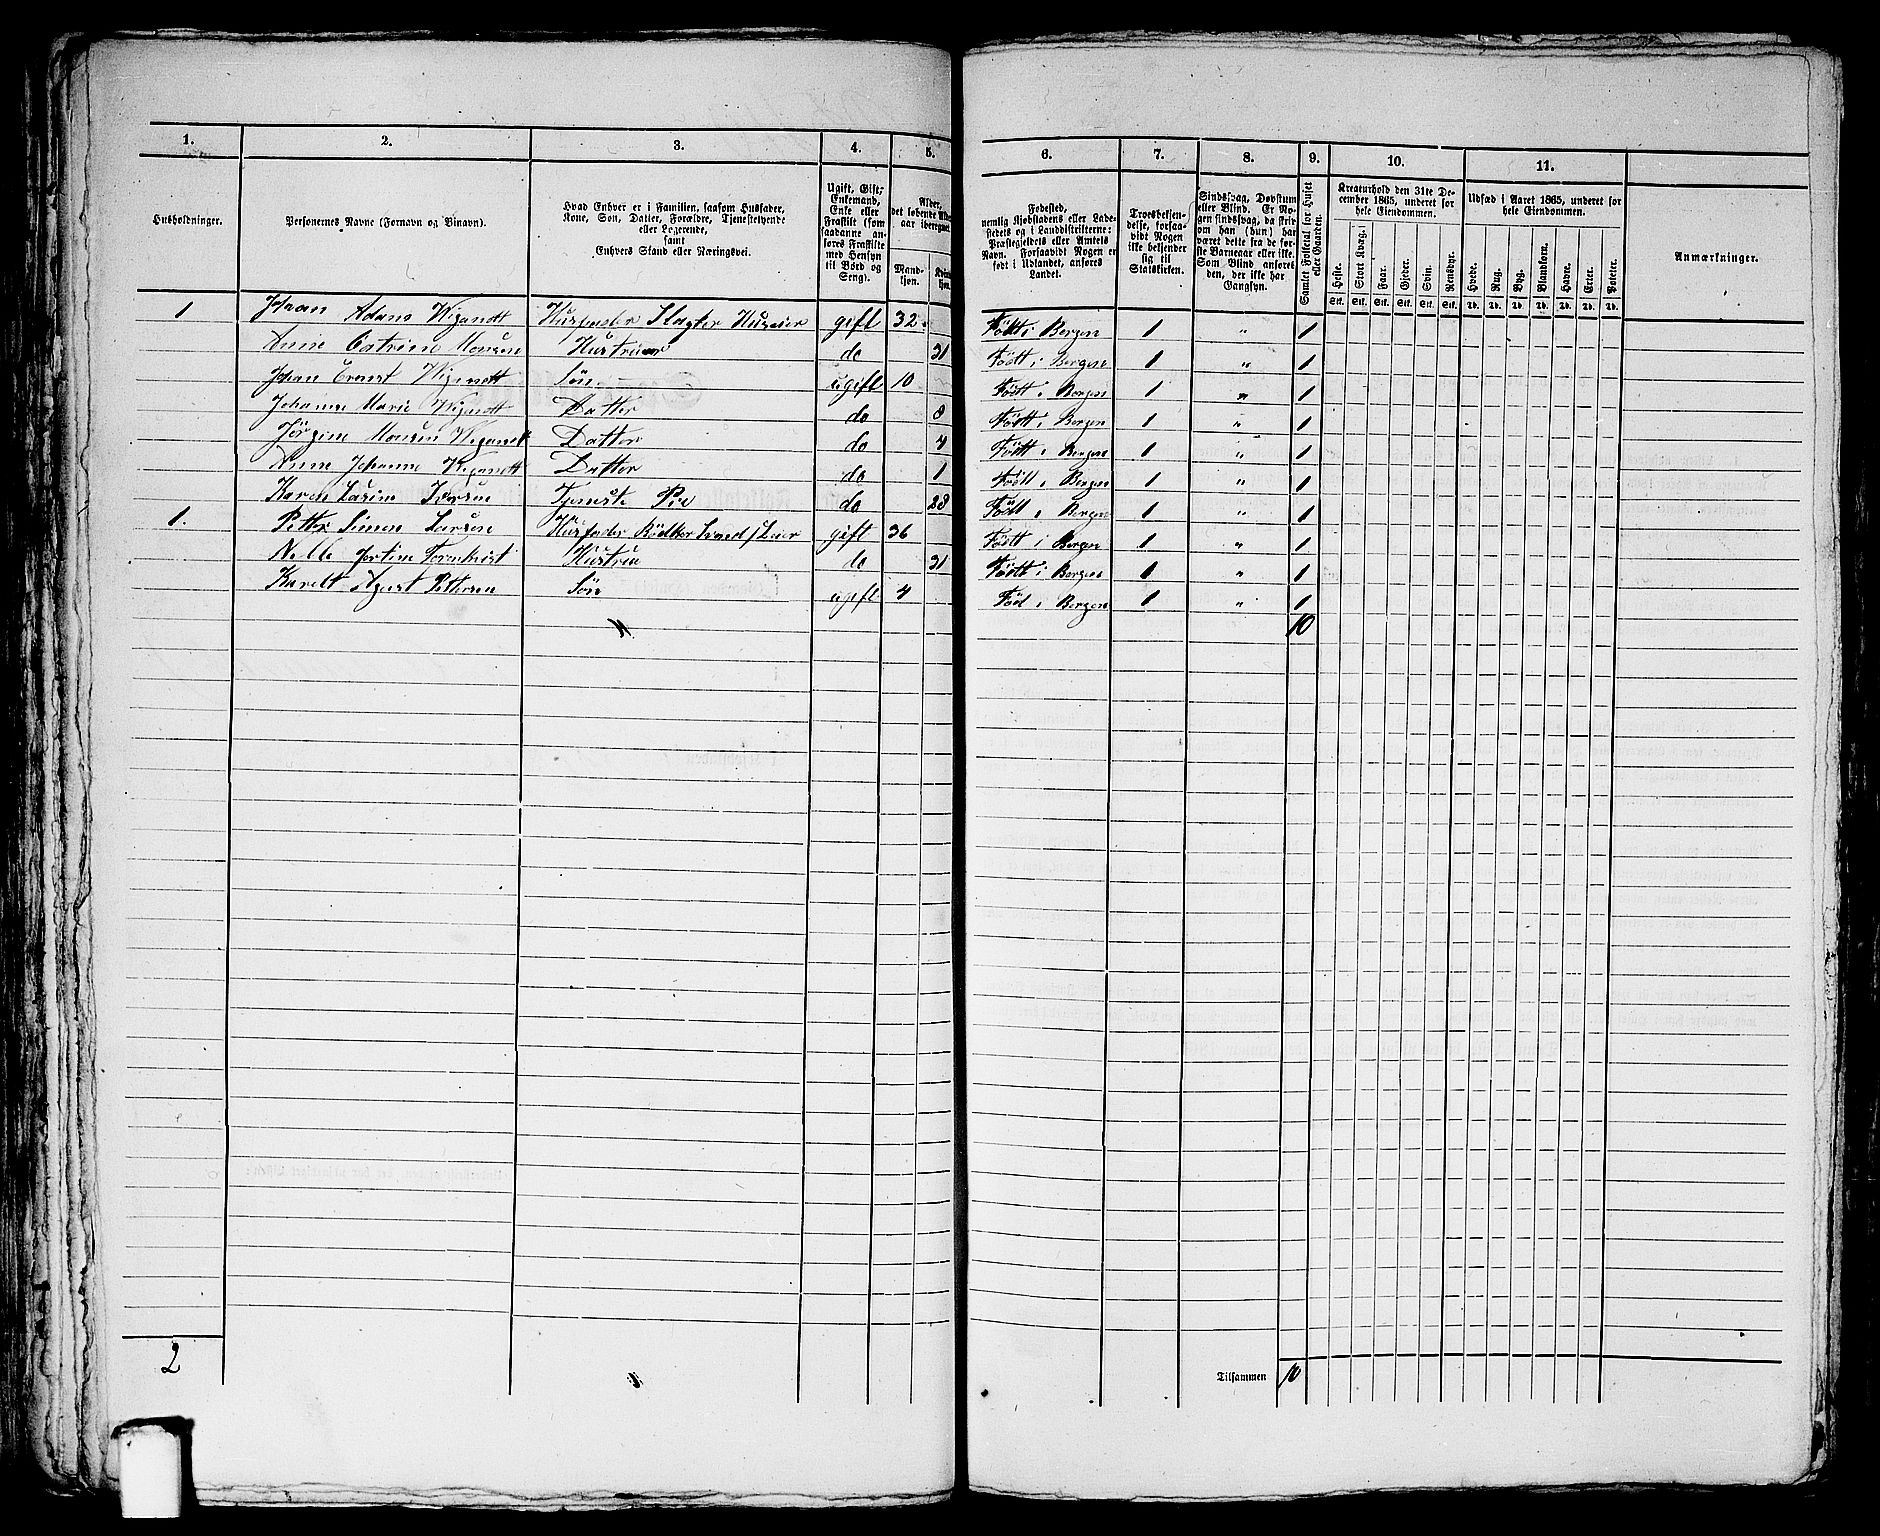 1. 2. 3. 4. 5. 6. 7. 8. 9. 10. 11.
Husholdninger.
Personernes Navne (Fornavn og Binavn).
Hvad Enhver er i Familien, saasom Husfader,
Kone, Søn, Datter, Forældre, Tjenestetyende
eller Logerende,
samt
Enhvers Stand eller Næringsvei.
Ugift, Gift,
Enkemand,
Enke eller
Fraskilt (som
saadanne an-
føres Fraskilte
med Hensyn
til Bord og
Seng).
Alder,
det løbende Alders-
aar iberegnet.
Mand-
kjøn.
Kvinde-
kjøn.
Fødested,
nemlig Kjøbstadens eller Lade-
stedets og i Landdistrikterne:
Præstegjeldets eller Amtets
Navn. Forsaavidt Nogen er
født i Udlandet, anføres
Landet.
Troesbekjen-
delse, forsaa-
vidt Nogen
ikke bekjender
sig til
Statskirken.
Sindssvag, Døvstum
eller Blind. Er No-
gen sindssvag, da skri-
ves om han (hun) har
været dette fra de før-
ste Barneaar eller ikke.
Som Blind anføres
den, der ikke har
Gangsyn.
Samlet Folketal for Huset
eller Gaarden.
Kreaturhold den 31te De-
cember 1865, underet for
hele Eiendommen.
Heste. Stort Kvæg. Faar. Gjeder. Svin. Rensdyr.
Stk. Stk. Stk. Stk. Stk. Stk.
Udsæd i Aaret 1865, underet for
hele Eiendommen.
Hvede. Rug. Byg. Blandkorn. Havre. Erter. Poteter.
Td. Td. Td. Td. Td. Td. Td.
Anmærkninger.
1 Johan Adam Wigandt Husfader Slagter Huseier gift 32 Födt i Bergen 1 " 1
Anne Catrine Monsen Hustrue do 31 Födt i Bergen 1 " 1
Johan Ernst Wigandt Sön ugift 10 Födt i Bergen 1 " 1
Johanne Marie Wigandt Datter do 8 Födt i Bergen 1 " 1
Jörgine Monsen Wigandt Datter do 4 Födt i Bergen 1 " 1
Anne Johanne Wigandt Datter do 1 Födt i Bergen 1 " 1
Karen Larine Iversen Tjeneste Pie do 28 Födt i Bergen 1 " 1
1. Petter Simon Larsen Husfader Bödker gift 36 Födt i Bergen 1 " 1
Nille Hustrue do 31 Födt i Bergen 1 " 1
Agust Pettersen Sön ugift 4 Föd i Bergen 1 " 1
10
2
Tilsammen 10